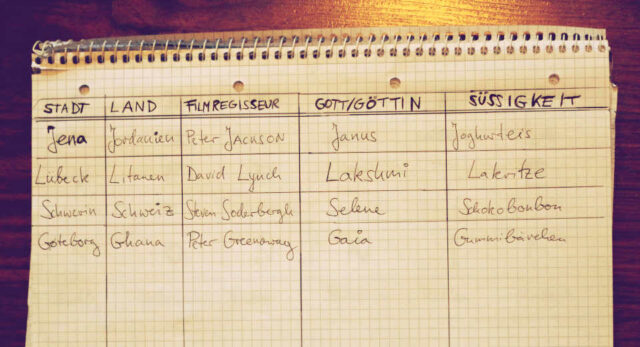 STADT LAND FILMREGISSEUR GOTT/GÖTTIN SÜSSIGKEIT
Jena Jordanien Peter JACKSON Janus Joghurteis
Lübeck Litauen David Lynch Lakshmi Lakritze
Schwerin Schweiz Steven Soderbergh Selene Schokobonbon
Göteborg Ghana Peter Greenaway Gaia Gummibärchen